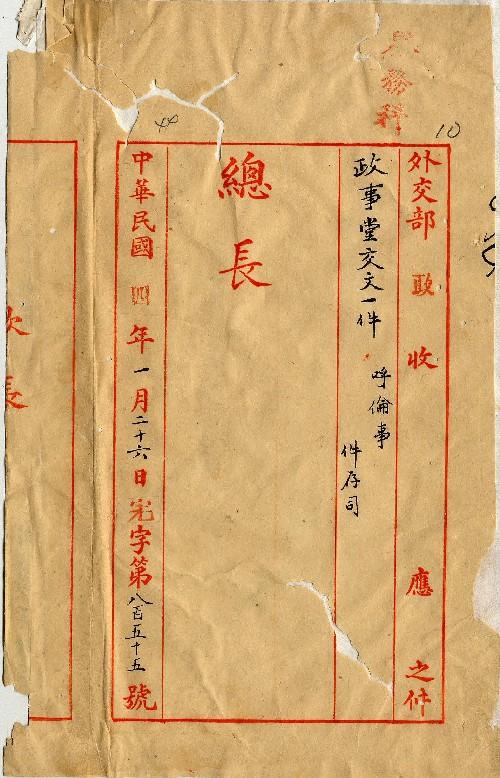 務科
10
44
外交部 政收 應 之件
政事堂交文一件
呼倫事
件存司
總長
中華民國四年一月二十六日宅字第八百五十五號
次長